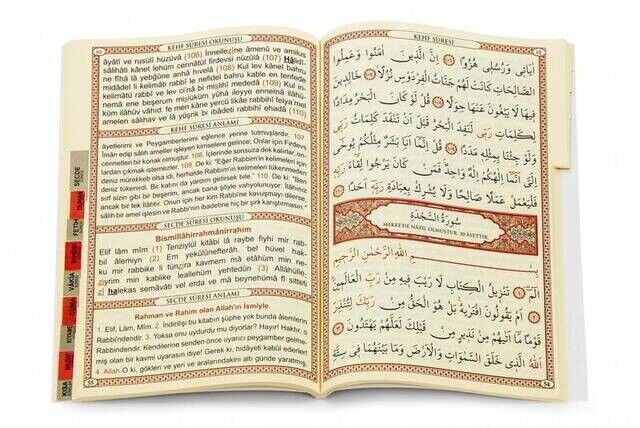 KEHF SÛRESİ OKUNUŞU
âyâtî ve rusulî hüzüvâ (106) İnnellezîne âmenû ve amilus
sâlihâti kânet lehüm cennâtül firdevsi nüzülâ (107) Hâlidî-
ne fîhâ lâ yebğûne anhâ hıvelâ (108) Kul lev kânel bahru
midâdel li kelimâti rabbî le nefidel bahru kable en tenfede
kelimâtü rabbî ve lev ci'nâ bi mislihî mededâ (109) Kul in-
nemâ ene beşerum mislüküm yûhâ ileyye ennemâ ilâhü-
küm ilâhüv vâhid, fe men kâne yercû likâe rabbihî felya'mel
amelen sâlihav ve lâ yüşrik bi ibâdeti rabbihî ehadâ (110)
KEHF SÛRESİ ANLAMI
âyetlerimi ve Peygamberlerimi eğlence yerine tutmuşlardır. 107
İman edip sâlih ameller işleyen kimselere gelince; Onlar için Firdevs
cennetleri bir konak olmuştur. 108. İçlerinde sonsuza dek kalırlar, on-
lardan çıkmak istemezler. 109. De ki: "Eğer Rabbim'in kelimeleri için
deniz mürekkeb olsa idi, herhalde Rabbim'in kelimeleri tükenmeden
deniz tükenirdi. Bir katını da yardım getirsek bile." 110. De ki: "Ben
sırf sizin gibi bir beşerim, ancak bana şöyle vahyolunuyor: İlâhınız
ancak bir tek ilâhtır. Onun için her kim Rabbi'ne kavuşmayı dilerse,
sâlih bir amel işlesin ve Rabbi'nin ibadetine hiç bir şirk karıştırmasın."
SECDE SÛRESİ OKUNUŞU
Bismillâhirrahmânirrahim
Elif lâm mîm (1) Tenzîylül kitâbi lâ raybe fîyhi mir rab-
bil âlemiyn (2) Em yekûlûnefterâh, bel hüvel hak-
ku mir rabbike li tünzira kavmem mâ etâhüm min ne-
ziyrim min kablike leallehüm yehtedûn (3) Allâhülle-
zî halekas semâvâti vel erda ve mâ beynehümâ fî sitteti
SECDE SÛRESİ ANLAMI
Rahman ve Rahim olan Allah'ın İsmiyle.
1. Elif, Lâm, Mîm. 2. İndirilişi bu kitabın şüphe yok bunda âlemlerin
Rabbi'ndendir. 3. Yoksa onu uydurdu mu diyorlar? Hayır! Haktır, o
Rabbi'ndendir. Kendilerine senden önce uyarıcı peygamber gelme-
miş olan bir kavmi uyarasın diye! Gerek ki, hidâyeti kabûl ederler!
4. Allah O ki, gökleri ve yeri ve aralarındakini altı günde yaratmış,
SECDE
DUHAN
FETİH
VÂKIA
KIYAME
KISA
KEHF SÛRESİ
اٰيَاتٖى وَرُسُلٖى هُزُوًا ﴿١٠٦﴾ اِنَّ الَّذٖينَ اٰمَنُوا وَعَمِلُوا
الصَّالِحَاتِ كَانَتْ لَهُمْ جَنَّاتُ الْفِرْدَوْسِ نُزُلًا ﴿١٠٧﴾ خَالِدٖينَ
فٖيهَا لَا يَبْغُونَ عَنْهَا حِوَلًا ﴿١٠٨﴾ قُلْ لَوْ كَانَ الْبَحْرُ مِدَادًا
لِكَلِمَاتِ رَبّٖى لَنَفِدَ الْبَحْرُ قَبْلَ اَنْ تَنْفَدَ كَلِمَاتُ رَبّٖى
وَلَوْ جِئْنَا بِمِثْلِهٖ مَدَدًا ﴿١٠٩﴾ قُلْ اِنَّمَا اَنَا بَشَرٌ مِثْلُكُمْ يُوحٰٓى
اِلَىَّ اَنَّمَا اِلٰهُكُمْ اِلٰهٌ وَاحِدٌ فَمَنْ كَانَ يَرْجُوا لِقَٓاءَ
رَبِّهٖ فَلْيَعْمَلْ عَمَلًا صَالِحًا وَلَا يُشْرِكْ بِعِبَادَةِ رَبِّهٖٓ اَحَدًا ﴿١١٠﴾
سُورَةُ السَّجْدَةِ
MEKKE'DE NÂZİL OLMUŞTUR. 30 ÂYETTİR.
بِسْمِ اللّٰهِ الرَّحْمٰنِ الرَّحٖيمِ
الٓمٓ ﴿١﴾ تَنْزٖيلُ الْكِتَابِ لَا رَيْبَ فٖيهِ مِنْ رَبِّ الْعَالَمٖينَ ﴿٢﴾
اَمْ يَقُولُونَ افْتَرٰيهُ بَلْ هُوَ الْحَقُّ مِنْ رَبِّكَ لِتُنْذِرَ
قَوْمًا مَٓا اَتٰيهُمْ مِنْ نَذٖيرٍ مِنْ قَبْلِكَ لَعَلَّهُمْ يَهْتَدُونَ ﴿٣﴾
اَللّٰهُ الَّذٖى خَلَقَ السَّمٰوَاتِ وَالْاَرْضَ وَمَا بَيْنَهُمَا فٖى سِتَّةِ